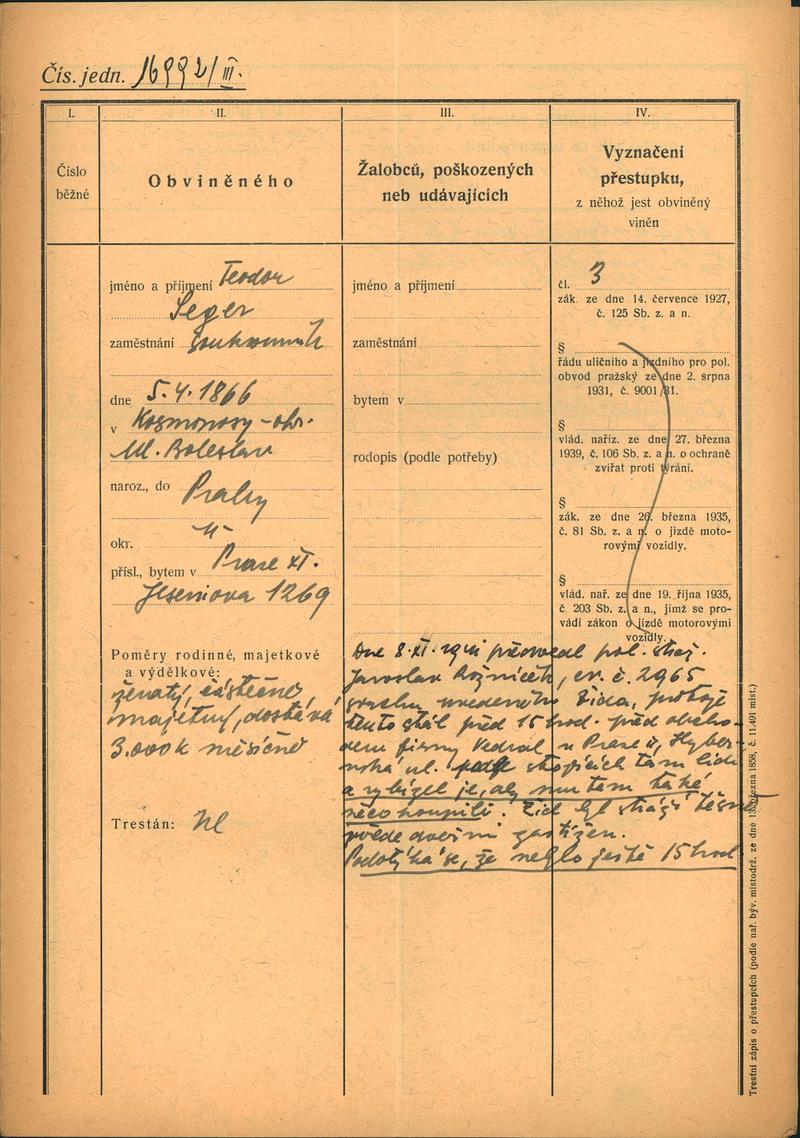 Čís. jedn. 16992/III.
I.
Číslo
běžné
II.
Obviněného
III.
Žalobců, poškozených
neb udávajících
IV.
Vyznačení
přestupku,
z něhož jest obviněný
viněn
jméno a příjmení Teodor
Seger
zaměstnání soukromník
dne 5.4.1866
v Kosmonosy - okr.
Ml. Boleslav
naroz., do Prahy
okr. -"-
přísl., bytem v Praze XI.
Jeseniova 1269
Poměry rodinné, majetkové
a výdělkové:
ženatý, částečně
majetný, dostává
3.000 K měsíčně
Trestán: Ne
jméno a příjmení
zaměstnání
bytem v
rodopis (podle potřeby)
čl. 3
zák. ze dne 14. července 1927,
č. 125 Sb. z. a n.
§
řádu uličního a jízdního pro pol.
obvod pražský ze dne 2. srpna
1931, č. 9001/31.
§
vlád. naříz. ze dne 27. března
1939, č. 106 Sb. z. a n. o ochraně
zvířat proti týrání.
§
zák. ze dne 26. března 1935,
č. 81 Sb. z. a n. o jízdě moto-
rovými vozidly.
§
vlád. nař. ze dne 19. října 1935,
č. 203 Sb. z. a n., jímž se pro-
vádí zákon o jízdě motorovými
vozidly.
Dne 8. XI. 1941 předvedl pol. stráž.
Jaroslav, ev. č. 2965
svrchu uvedeného žida, protože
tento stál před 15 hod. před obcho-
dem firmy Vedral v Praze II, Hyber-
nská ul. stojících tam lidí
a vybízel je, aby mu tam také
něco koupili. Žid byl stráží těsně
přede dveřmi zastižen.
Podotýká se, že nebylo ještě 15 hod
Trestní zápis o přestupcích (podle nař. býv. místodrž. ze dne 13. března 1858, č. 11.491 míst.)